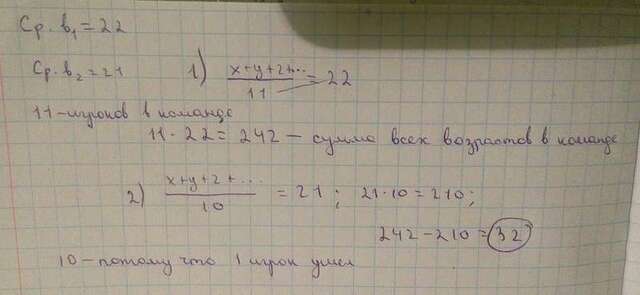 Ср. в₁ = 22
Ср. в₂ = 21
1) x+y+z+... / 11 = 22
11 – игроков в команде
11 · 22 = 242 – сумма всех возрастов в команде
2) x+y+z+... / 10 = 21; 21·10 = 210;
242 – 210 = 32
10 – потому что 1 игрок ушел